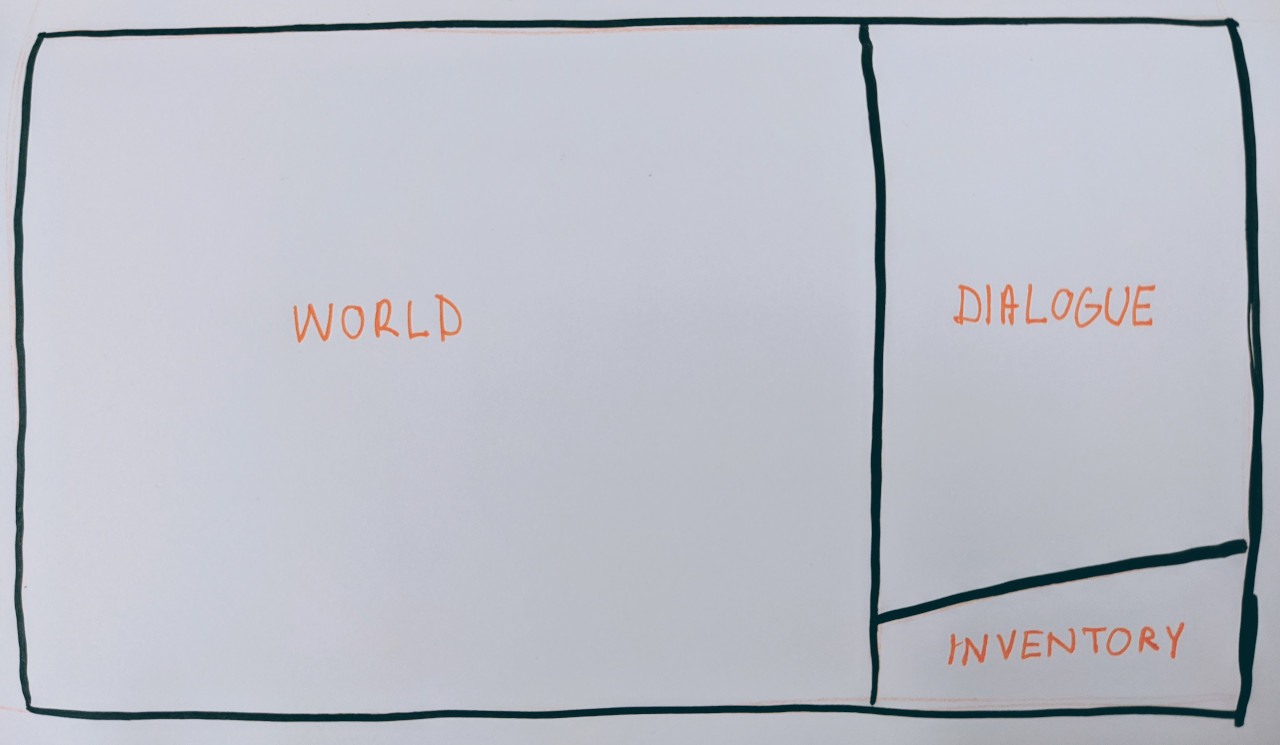 WORLD
DIALOGUE
INVENTORY